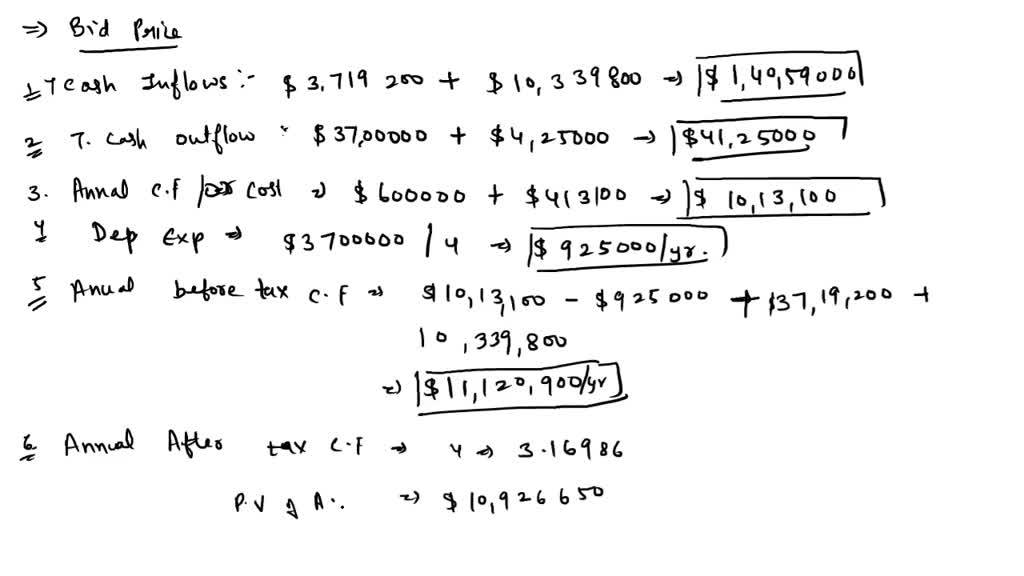 ⇒ Bid Price
1. T cash Inflows :- $3,719 200 + $10,339800 ⇒ $1,40,59000
2. T. Cash outflow : $37,00000 + $4,25000 → $41,25000
3. Annal C.F / Cost ⇒ $600000 + $413100 ⇒ $ 10,13,100
4 Dep Exp ⇒ $3700000 / 4 ⇒ $ 925000/yr.
5 Anual before tax C.F ⇒ $10,13,100 - $925000 + $37,19,200 +
10,339,800
⇒ $11,120,900/yr
6. Annual After tax C.F → 4 ⇒ 3.16986
P.V of A. ⇒ $10,926650